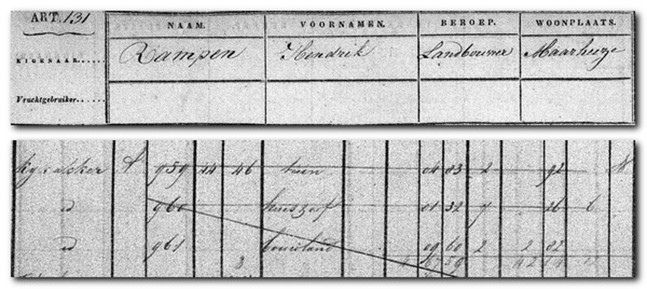 ART. 131
NAAM. VOORNAMEN. BEROEP. WOONPLAATS.
EIGENAAR...... Rampen Hendrik Landbouwer Maarheeze
Vruchtgebruiker......
A 959 44 46 tuin 04 03 2 92
id 960 huis erf 01 32 7 26 6
id 961 bouwland 09 60 2 2 02